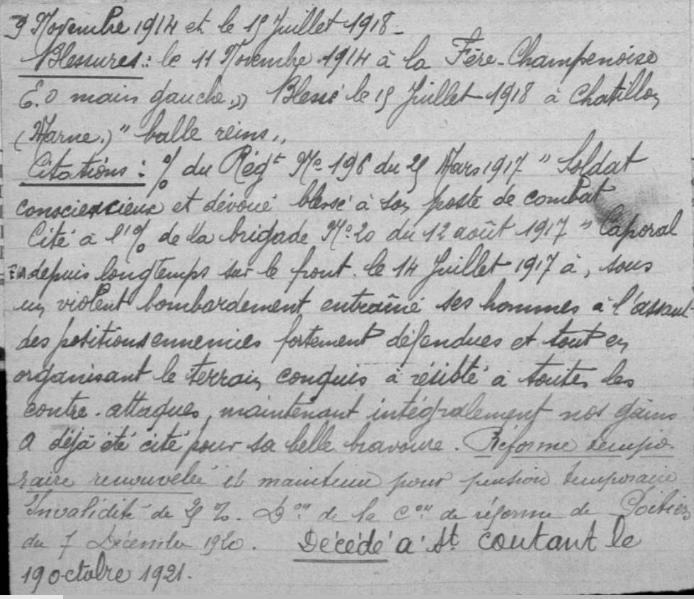 9 Novembre 1914 et le 15 Juillet 1918_
Blessures : le 11 Novembre 1914 à la Fère-Champenoise
E.O main gauche,,) Blessé le 15 Juillet 1918 à Chatillon
(Marne,) " balle reins,,
Citations : % du Régt No 196 du 25 Mars 1917 " Soldat
consciencieux et dévoué blessé à son poste de combat
Cité à l'% de la brigade No 20 du 12 août 1917 " Caporal
depuis longtemps sur le front. le 14 Juillet 1917 à, sous
un violent bombardement, entraîné ses hommes à l'assaut
des positions ennemies fortement défendues et tout en
organisant le terrain conquis à résisté à toutes les
contre-attaques, maintenant intégralement nos gains
A déjà été cité pour sa belle bravoure. Réforme tempo-
raire renouvelée et maintenu pour pension temporaire
Invalidité de 25 %. Don de la Con de réforme de Poitiers
du 7 Décembre 1920. Décédé à St Coutant le
19 octobre 1921.